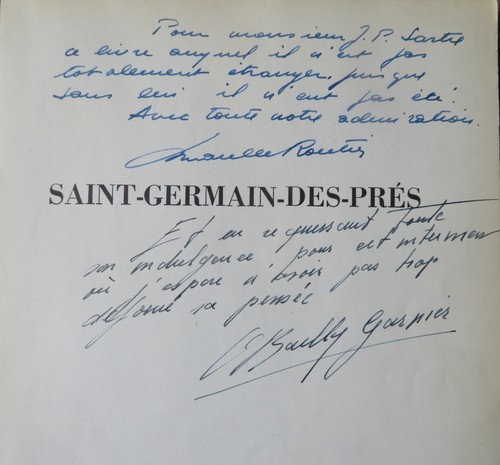 Pour monsieur J. P. Sartre
ce livre auquel il n'est pas
totalement étranger, puisque
sans lui il n'eut pas été.
Avec toute notre admiration.
Marcelle Routier
SAINT-GERMAIN-DES-PRÉS
Et en requerrant toute
son indulgence pour cet
où j'espère n'avoir pas trop
déformé sa pensée
Bailly Garnier